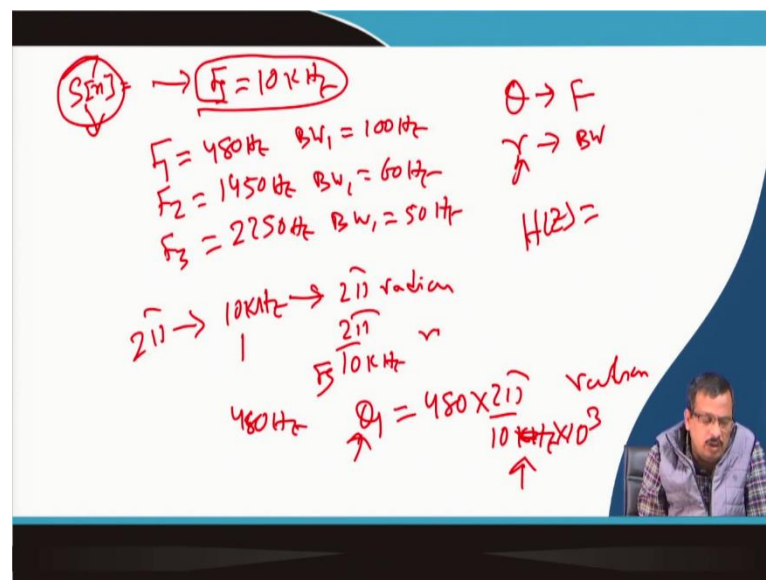 S[n] = → Fs = 10 KHz
F1 = 480 Hz BW1 = 100 Hz
F2 = 1450 Hz BW1 = 60 Hz
F3 = 2250 Hz BW1 = 50 Hz
θ → F
r → BW
H(Z) =
2π → 10 KHz → 2π radian
1 2π / 10 KHz r
Fs
480 Hz θ1 = 480 × 2π / 10 KHz × 10³ radian